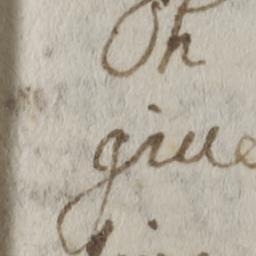 Oh
giue